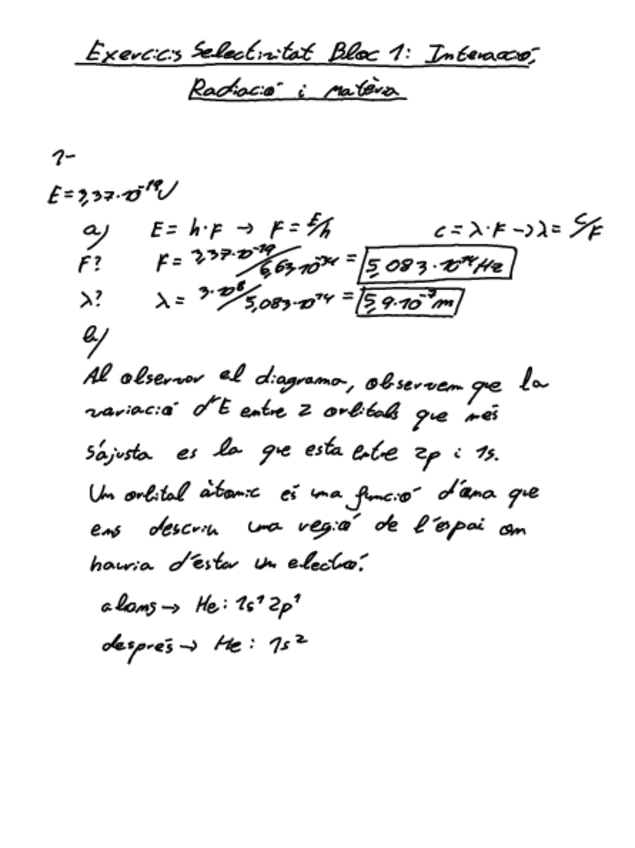 Exercicis Selectivitat Bloc 1: Interacció,
Radiació i Matèria
1-
E=3,37·10⁻¹⁹J
a) E = h·F → F = E/h c = λ·F → λ = C/F
F? F = 3,37·10⁻¹⁹/6,63·10⁻³⁴ = 5,083·10¹⁴Hz
λ? λ = 3·10⁸/5,083·10¹⁴ = 5,9·10⁻⁷m
b)
Al observar el diagrama, observem que la
variació d'E entre 2 orbitals que més
s'ajusta es la que esta entre 2p i 1s.
Un orbital àtomic és una funció d'ona que
ens descriu una regió de l'espai on
hauria d'estar un electró.
abans → He: 1s¹ 2p¹
després → He: 1s²